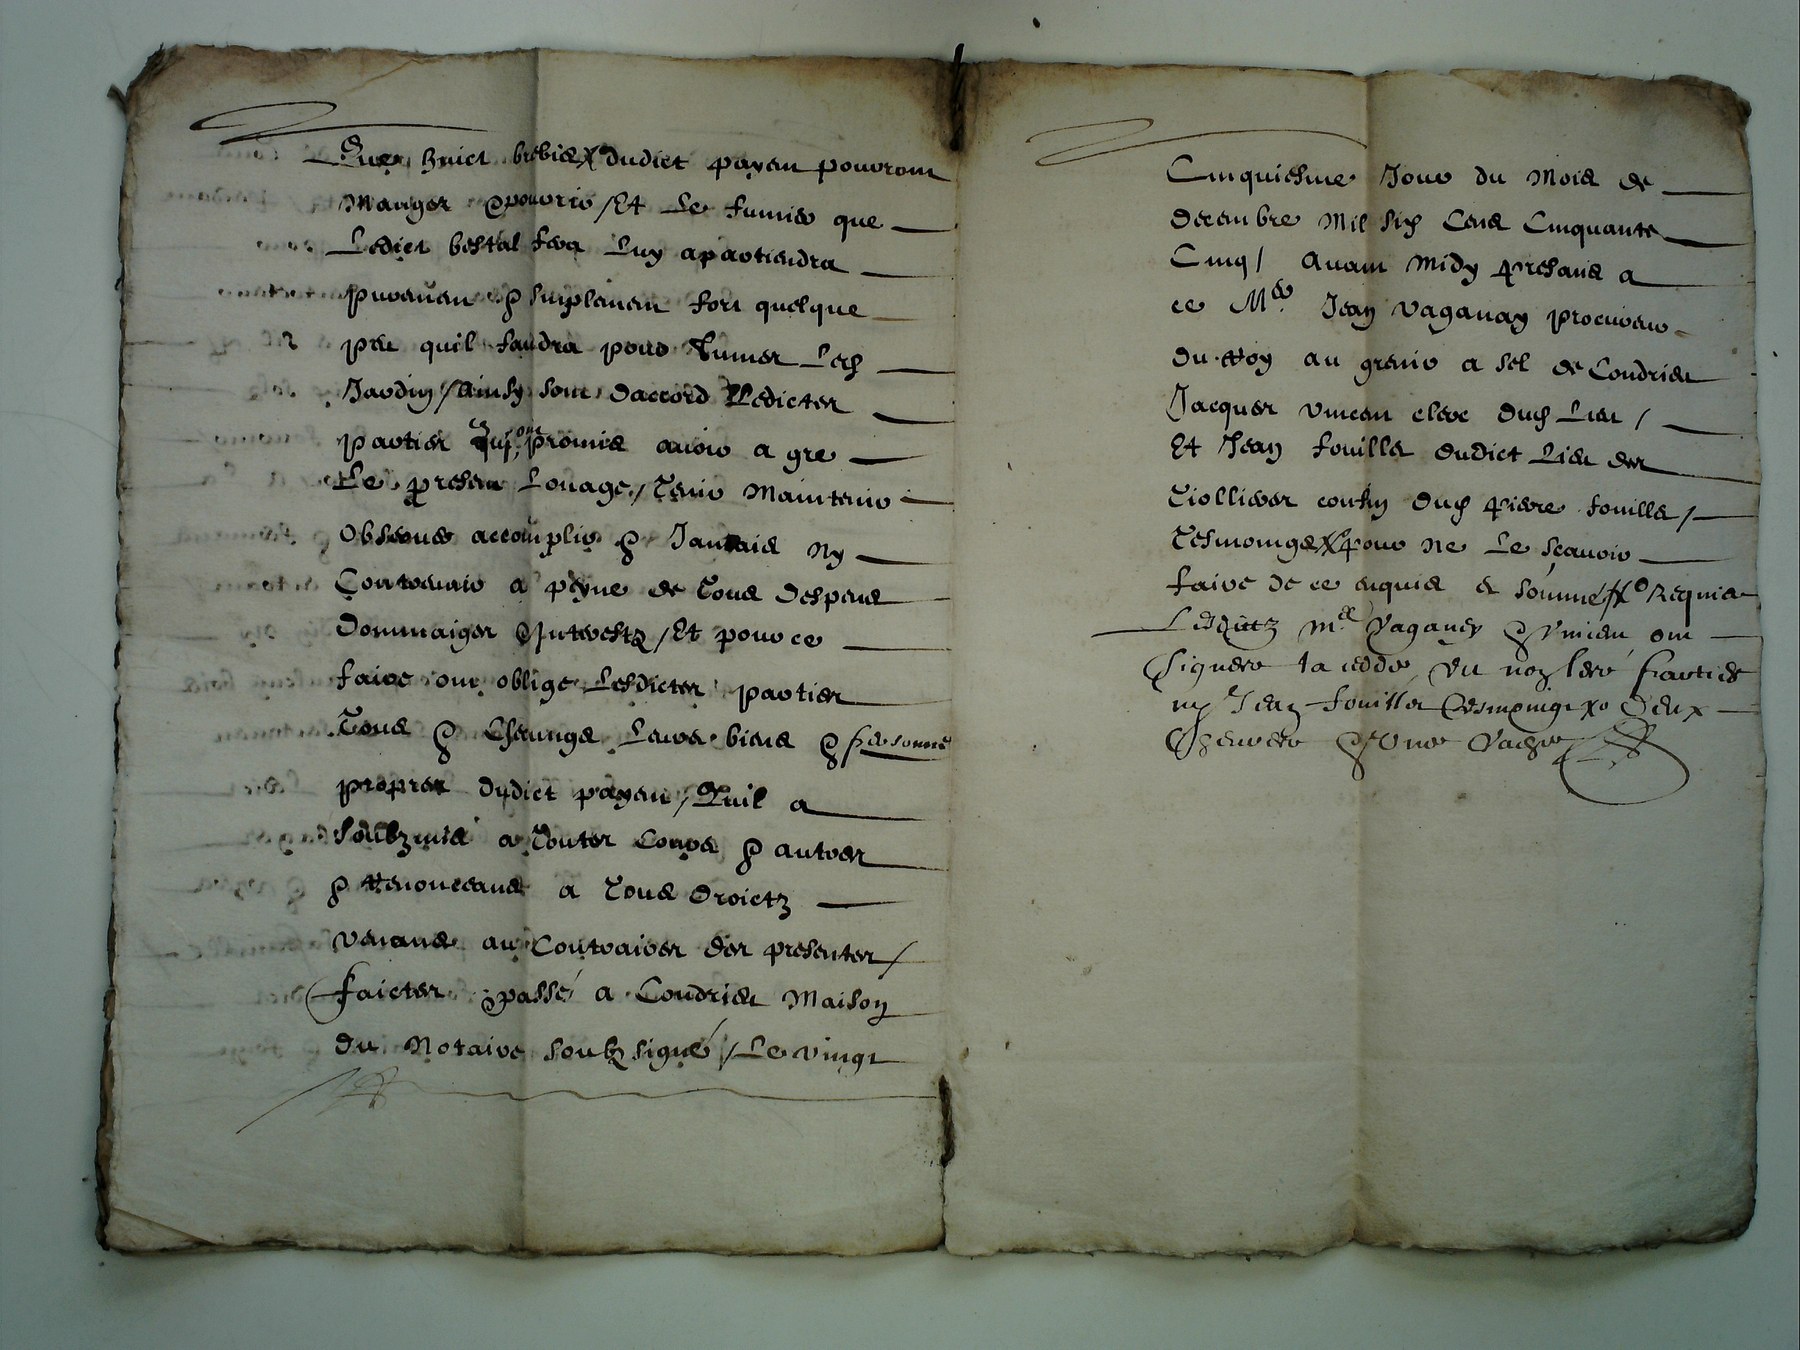 Que huict brebies X dudict payen pouvront
Manger & pourir / Et le fumier que
Ledict bestal fera luy apartiendra
purement & simplement fors quelque
peu quil faudra pour fumer Lech
Jardin / Ainsy sont daccord Lesdictes
parties Qui ont promis avoir a gre
Le present Louage / Tenir Maintenir
Observer accomplir & Jamais ny
Contrevenir a peyne de Tous despens
Dommaiges & Interestz / Et pour ce
faire ont oblige Lesdictes parties
Tous & Chacungs Leurs biens & personne
propres dudict payen / Quil a
soubzmis a Toutes Cours & autres
& Renonceans a Tous droictz
venans au Contraires des presentes /
faictes & passé a Condrieu Maison
du Notaire soubzsigné / Le vingt
Cinquiesme Jour du Mois de
decembre Mil Six Cens Cinquante
Cinq / Avant Midy presans a
ce Me. Jean Vaganay procureur
du Roy au grenier a Sel de Condrieu
Jacques vincen clerc duch Lieu /
Et Jean fouilla dudict Lieu des
Tiolliers cousin duch pierre fouilla /
Tesmoings X pour ne le sçavoir
faire de ce enquis & sommé X Requis
Lesdictz Me. Vaganey & vincen ont
signere la cedde, Et non les parties
ny Jean fouilla Tesmoingt X deux
Chevere & Une Vache